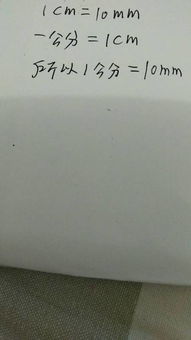 1cm=10mm
一公分=1cm
所以1公分=10mm